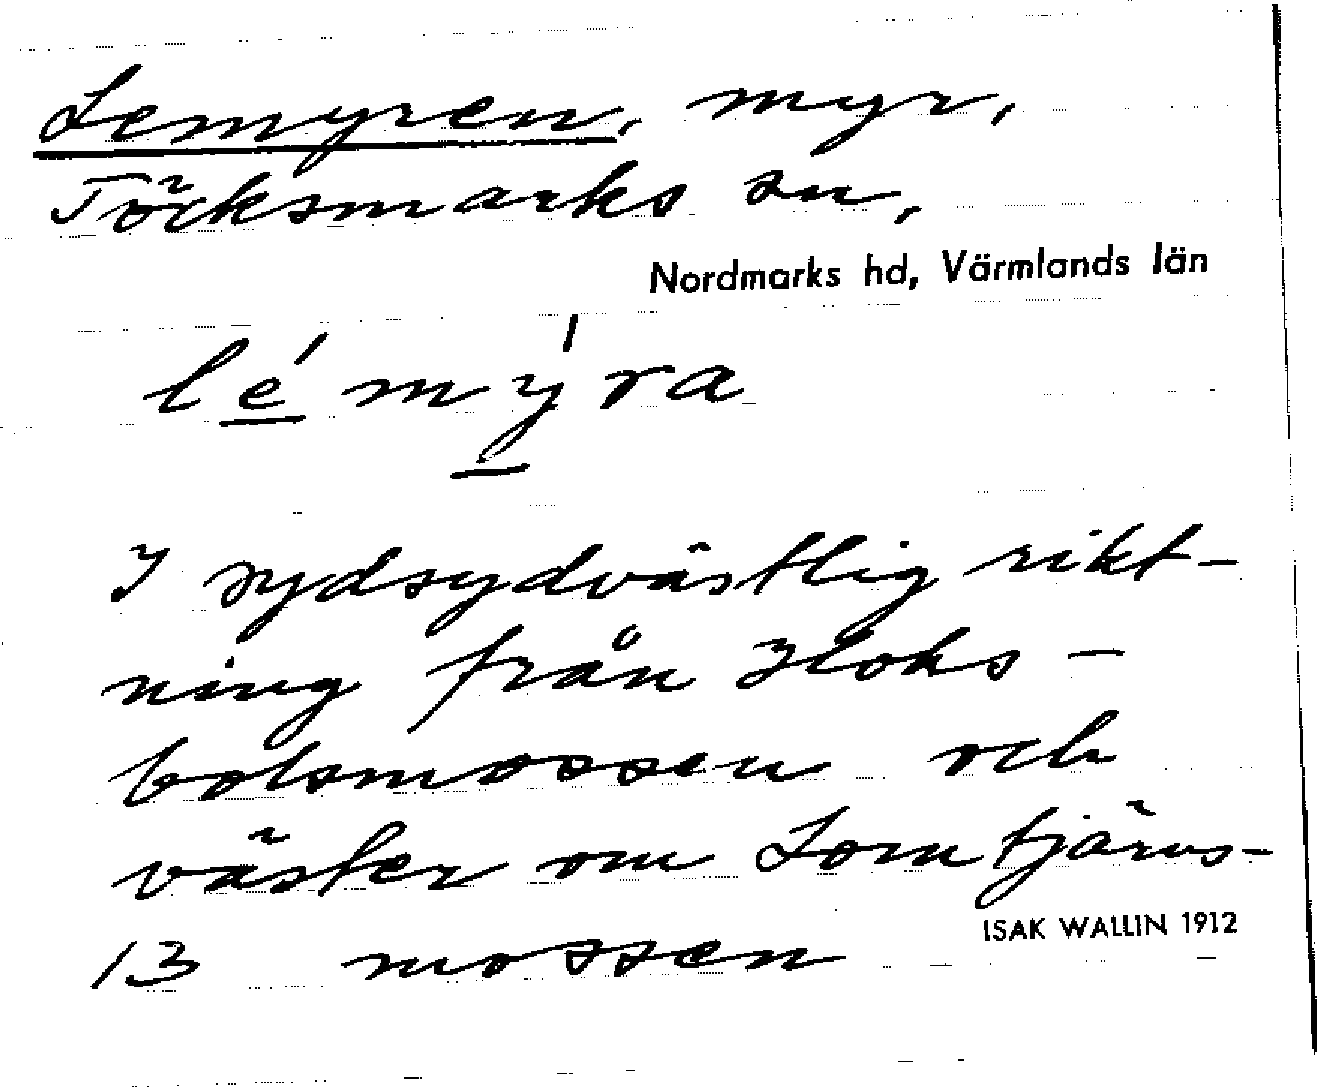 Lemyren, myr,
Töcksmarks sn,
Nordmarks hd, Värmlands län
lémýra
I sydsydvästlig rikt-
ning från Hoks-
bolsmossen och
väster om Lomtjärns-
13 mossen
ISAK WALLIN 1912